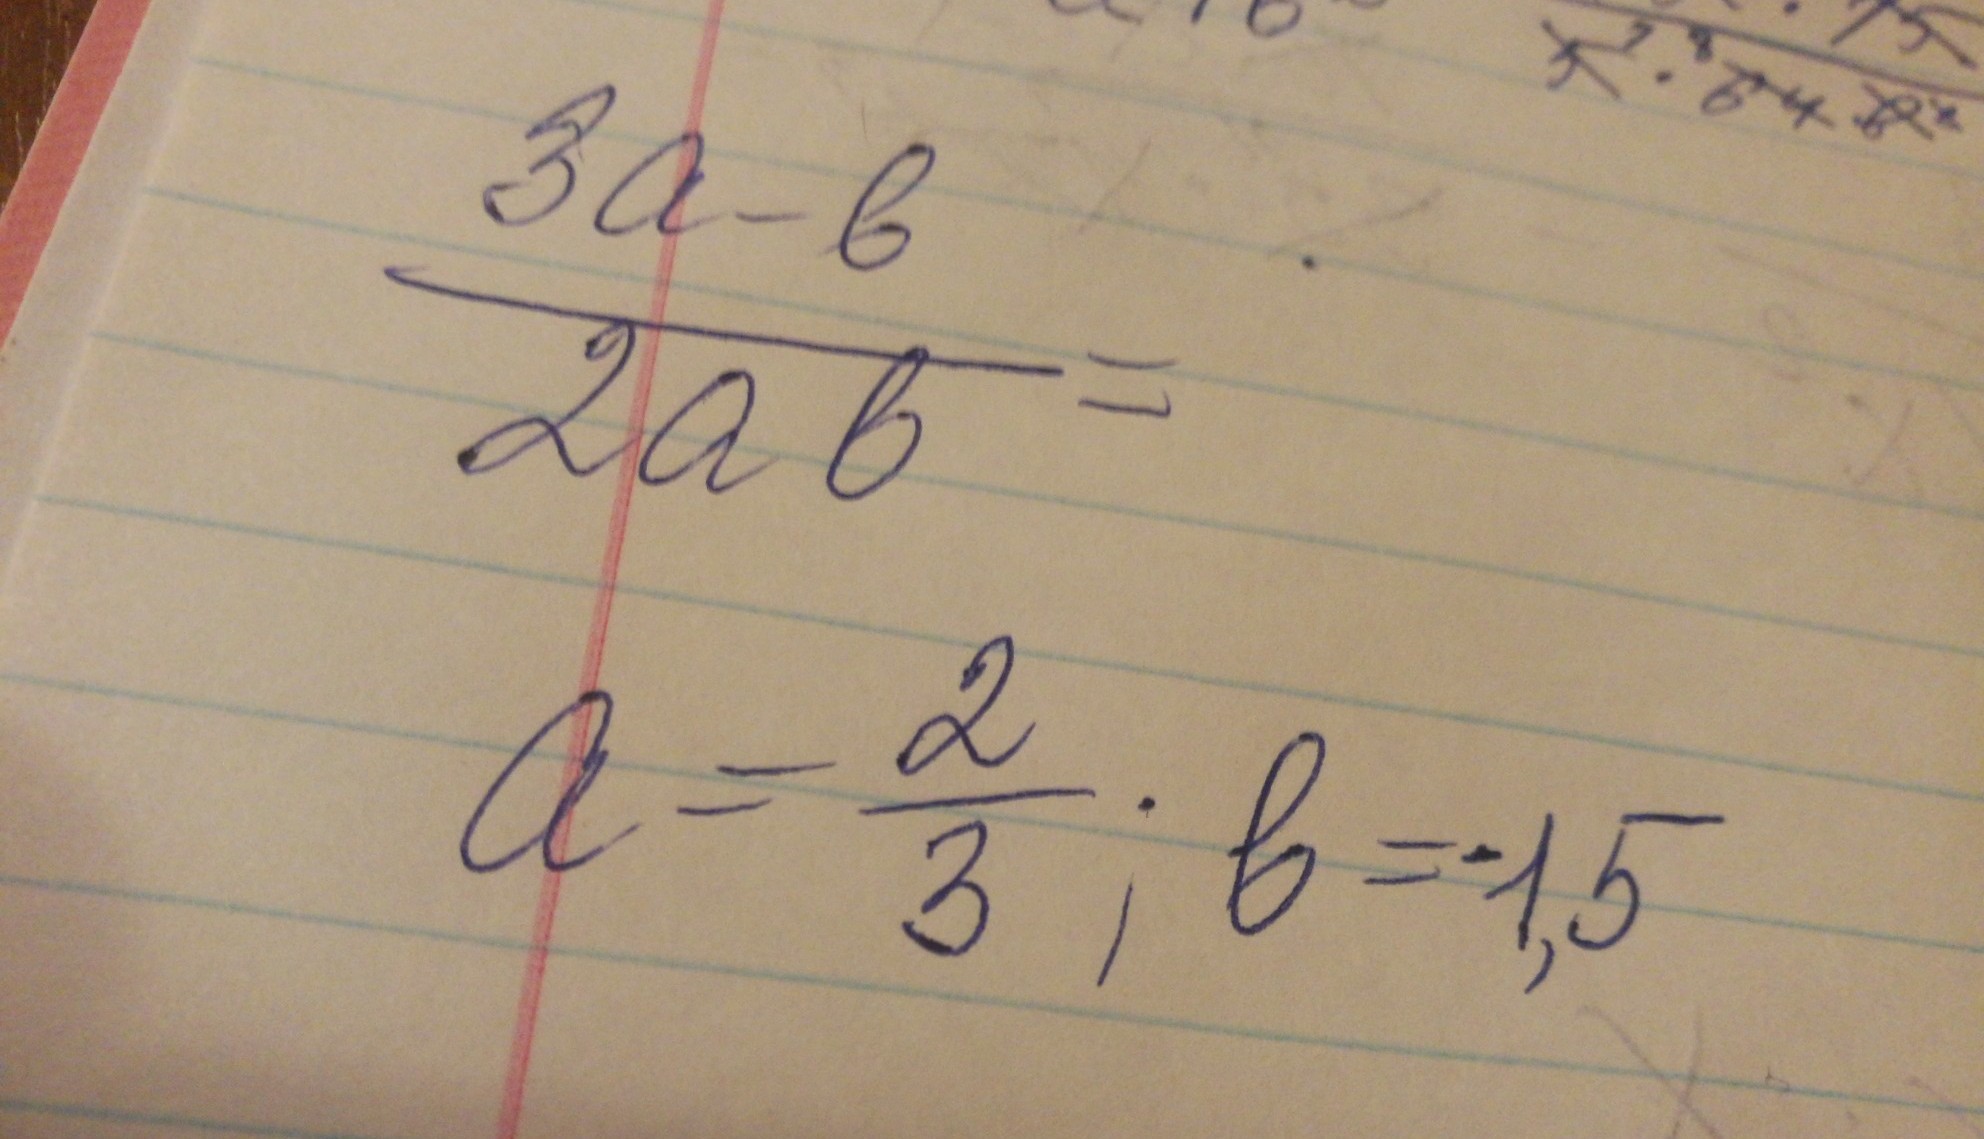 3a - b
2ab =
a = 2/3 ; b = -1,5